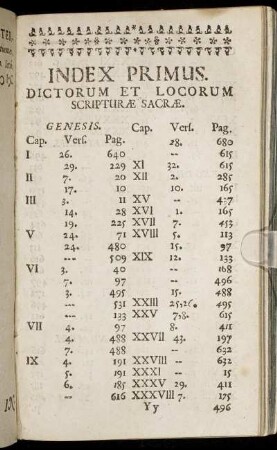 INDEX PRIMUS.
DICTORUM ET LOCORUM
SCRIPTURÆ SACRÆ.
GENESIS.
Cap. Vers. Pag. Cap. Vers. Pag.
28. 680
I 26. 640 -- 615
29. 229 XI 32. 615
II 7. 20 XII 2. 285
17. 10 10. 165
III 3. 11 XV -- 437
14. 28 XVI 1. 165
19. 225 XVII 7. 453
V 24. 71 XVIII 5. 113
24. 480 15. 97
--- 509 XIX 12. 133
VI 3. 40 -- 168
7. 97 -- 496
3. 495 15. 488
-- 531 XXIII 25,26. 495
-- 133 XXV 7,8. 615
VII 4. 97 8. 411
4. 488 XXVII 43. 197
7. 488 -- 632
IX 4. 191 XXVIII -- 632
5. 191 XXXI -- 15
6. 185 XXXV 29. 411
-- 616 XXXVIII 7. 175
Yy 496